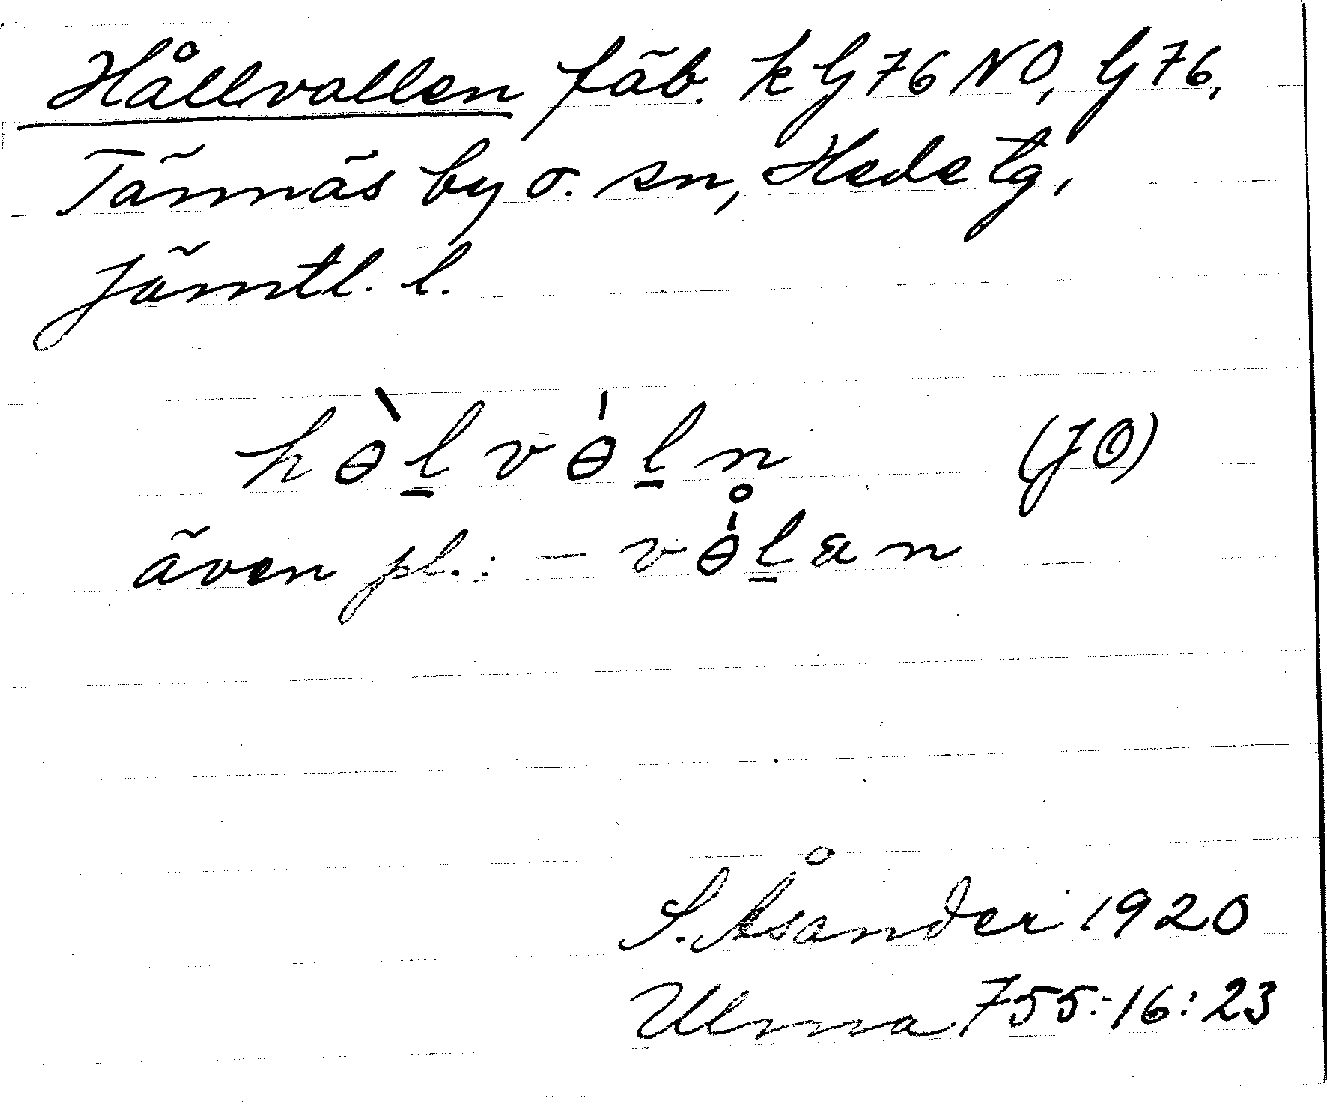 Hållvallen fäb. k G 76 NO, G 76,
Tännäs by o. sn, Hede tg,
Jämtl. l.
hɵ̀l̲vɵ̍l̲n̥ (JÖ)
även pl.: – vɵ̍l̲an
S. Åsander 1920
Ulma 755:16:23